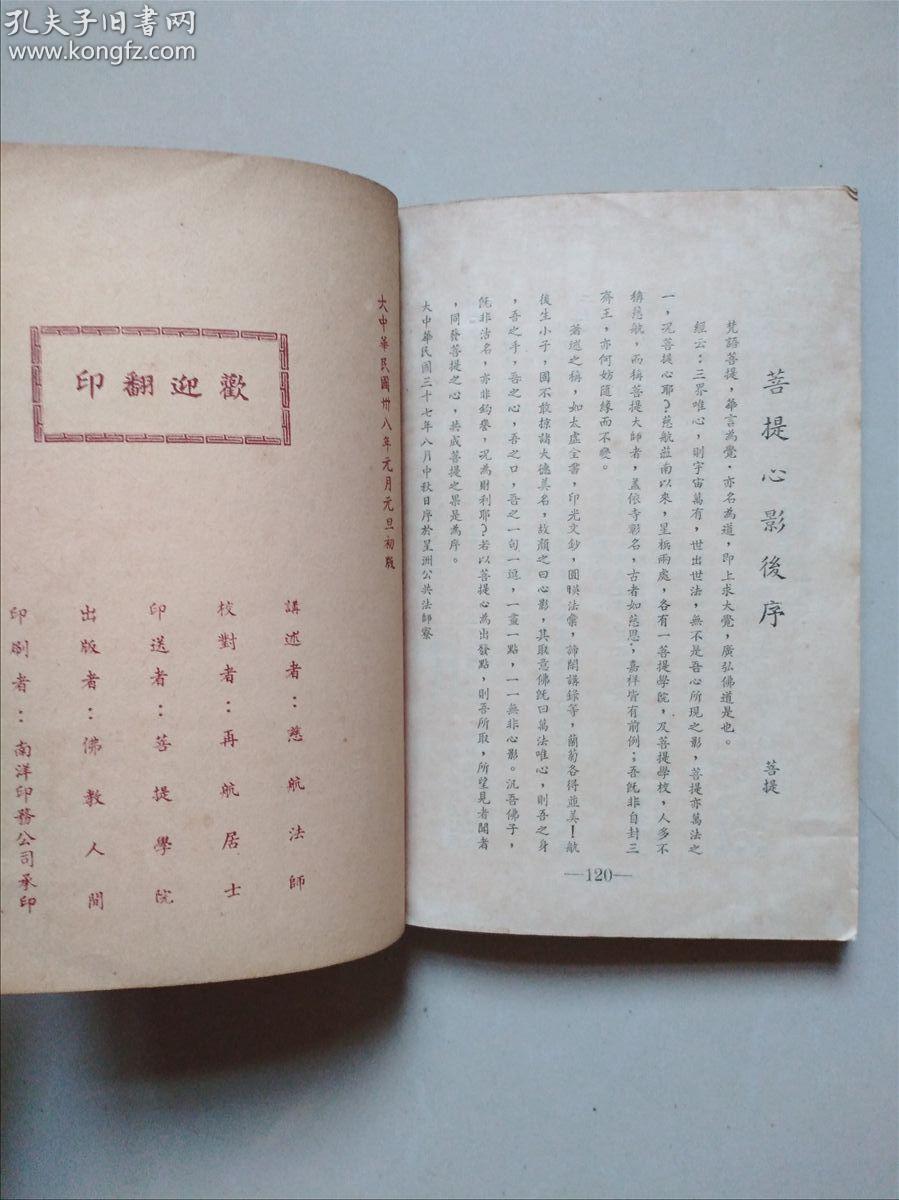 孔夫子旧书网
www.kongfz.com
菩提心影後序
菩提
梵語菩提，華言為覺．亦名為道，即上求大覺，廣弘佛道是也。
經云：三界唯心，則宇宙萬有，世出世法，無不是吾心所現之影，菩提亦萬法之
一，况菩提心耶？慈航莅南以來，星梹兩處，各有一菩提學院，及菩提學校，人多不
稱慈航，而稱菩提大師者，盖依寺彰名，古者如慈恩，嘉祥皆有前例；吾旣非自封三
齊王，亦何妨隨緣而不變。
著述之稱，如太虛全書，印光文鈔，圓瑛法彙，諦閑講錄等，蘭菊各得並美！航
後生小子，固不敢掠諸大德美名，故顏之曰心影，其取意佛旣曰萬法唯心，則吾之身
，吾之手，吾之心，吾之口，吾之一句一逗，一畫一點，一一無非心影。况吾佛子，
旣非沽名，亦非釣譽，况為財利耶？若以菩提心為出發點，則吾所取，所望見者聞者
，同發菩提之心，共成菩提之果是為序。
大中華民國三十七年八月中秋日序於星洲公共法師寮
—120—
大中華民國卅八年元月元旦初版
歡迎翻印
講述者：慈航法師
校對者：再航居士
印送者：菩提學院
出版者：佛教人間
印刷者：南洋印務公司承印